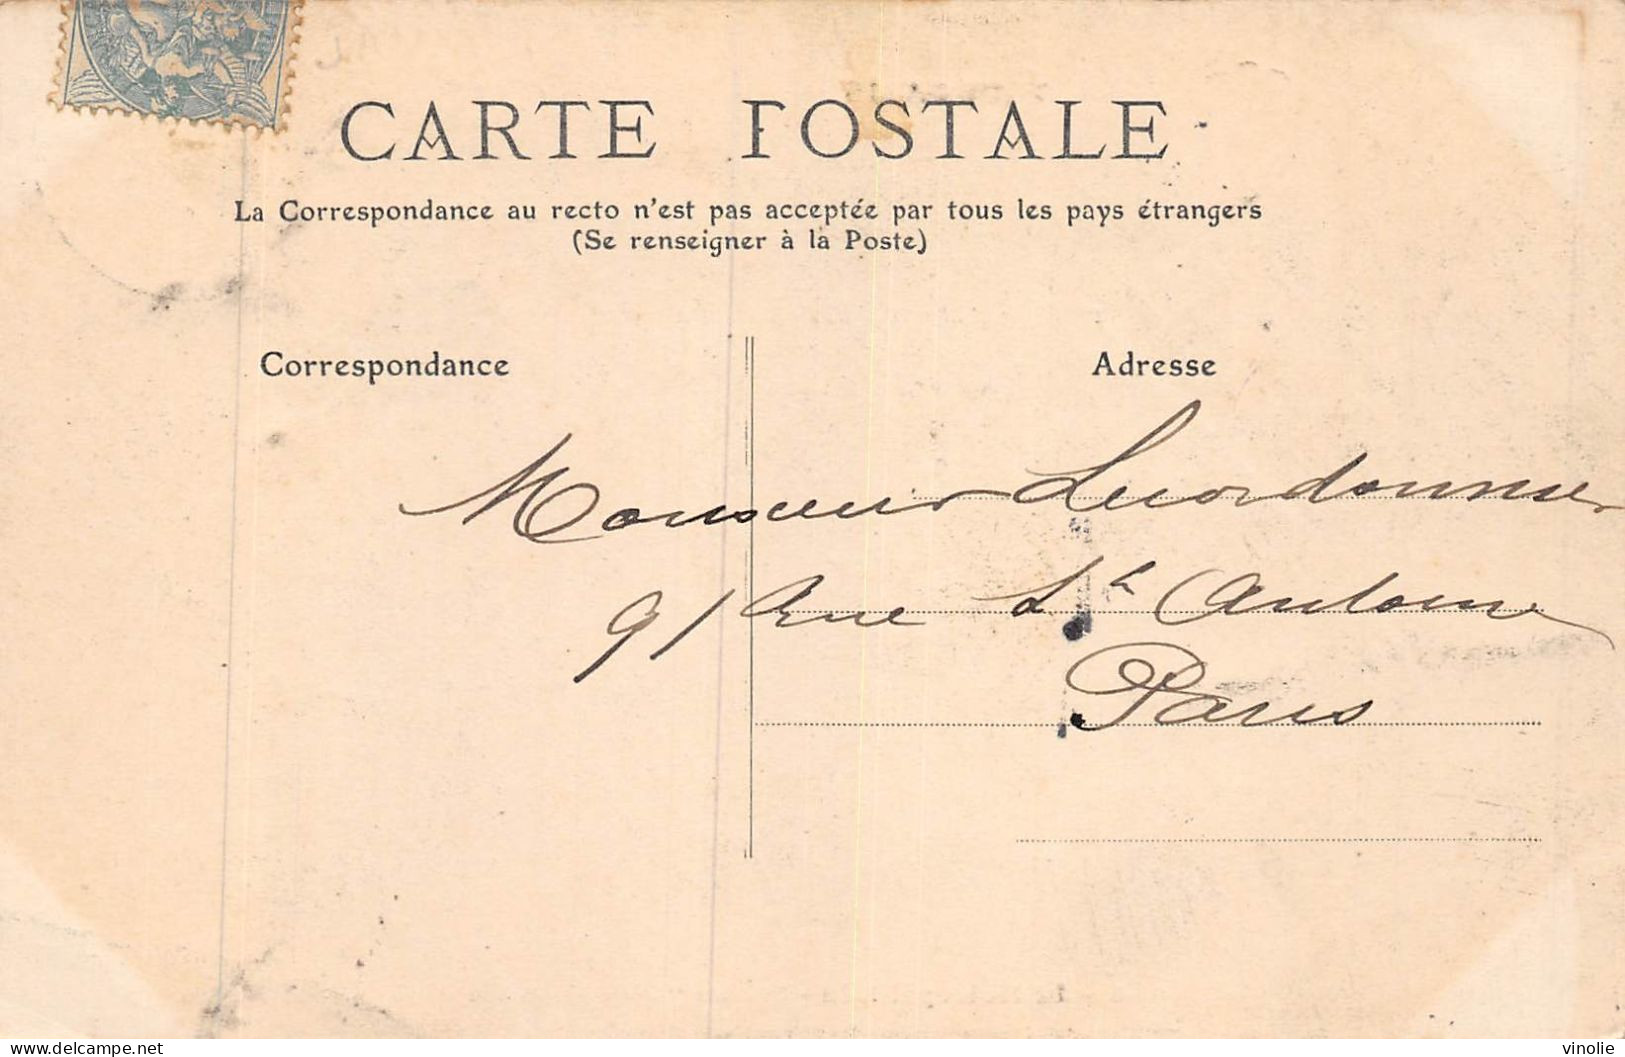 CARTE POSTALE
La Correspondance au recto n'est pas acceptée par tous les pays étrangers
(Se renseigner à la Poste)
Correspondance
Adresse
Monsieur
91 Rue St Antoine
Paris
www.delcampe.net
vinolie